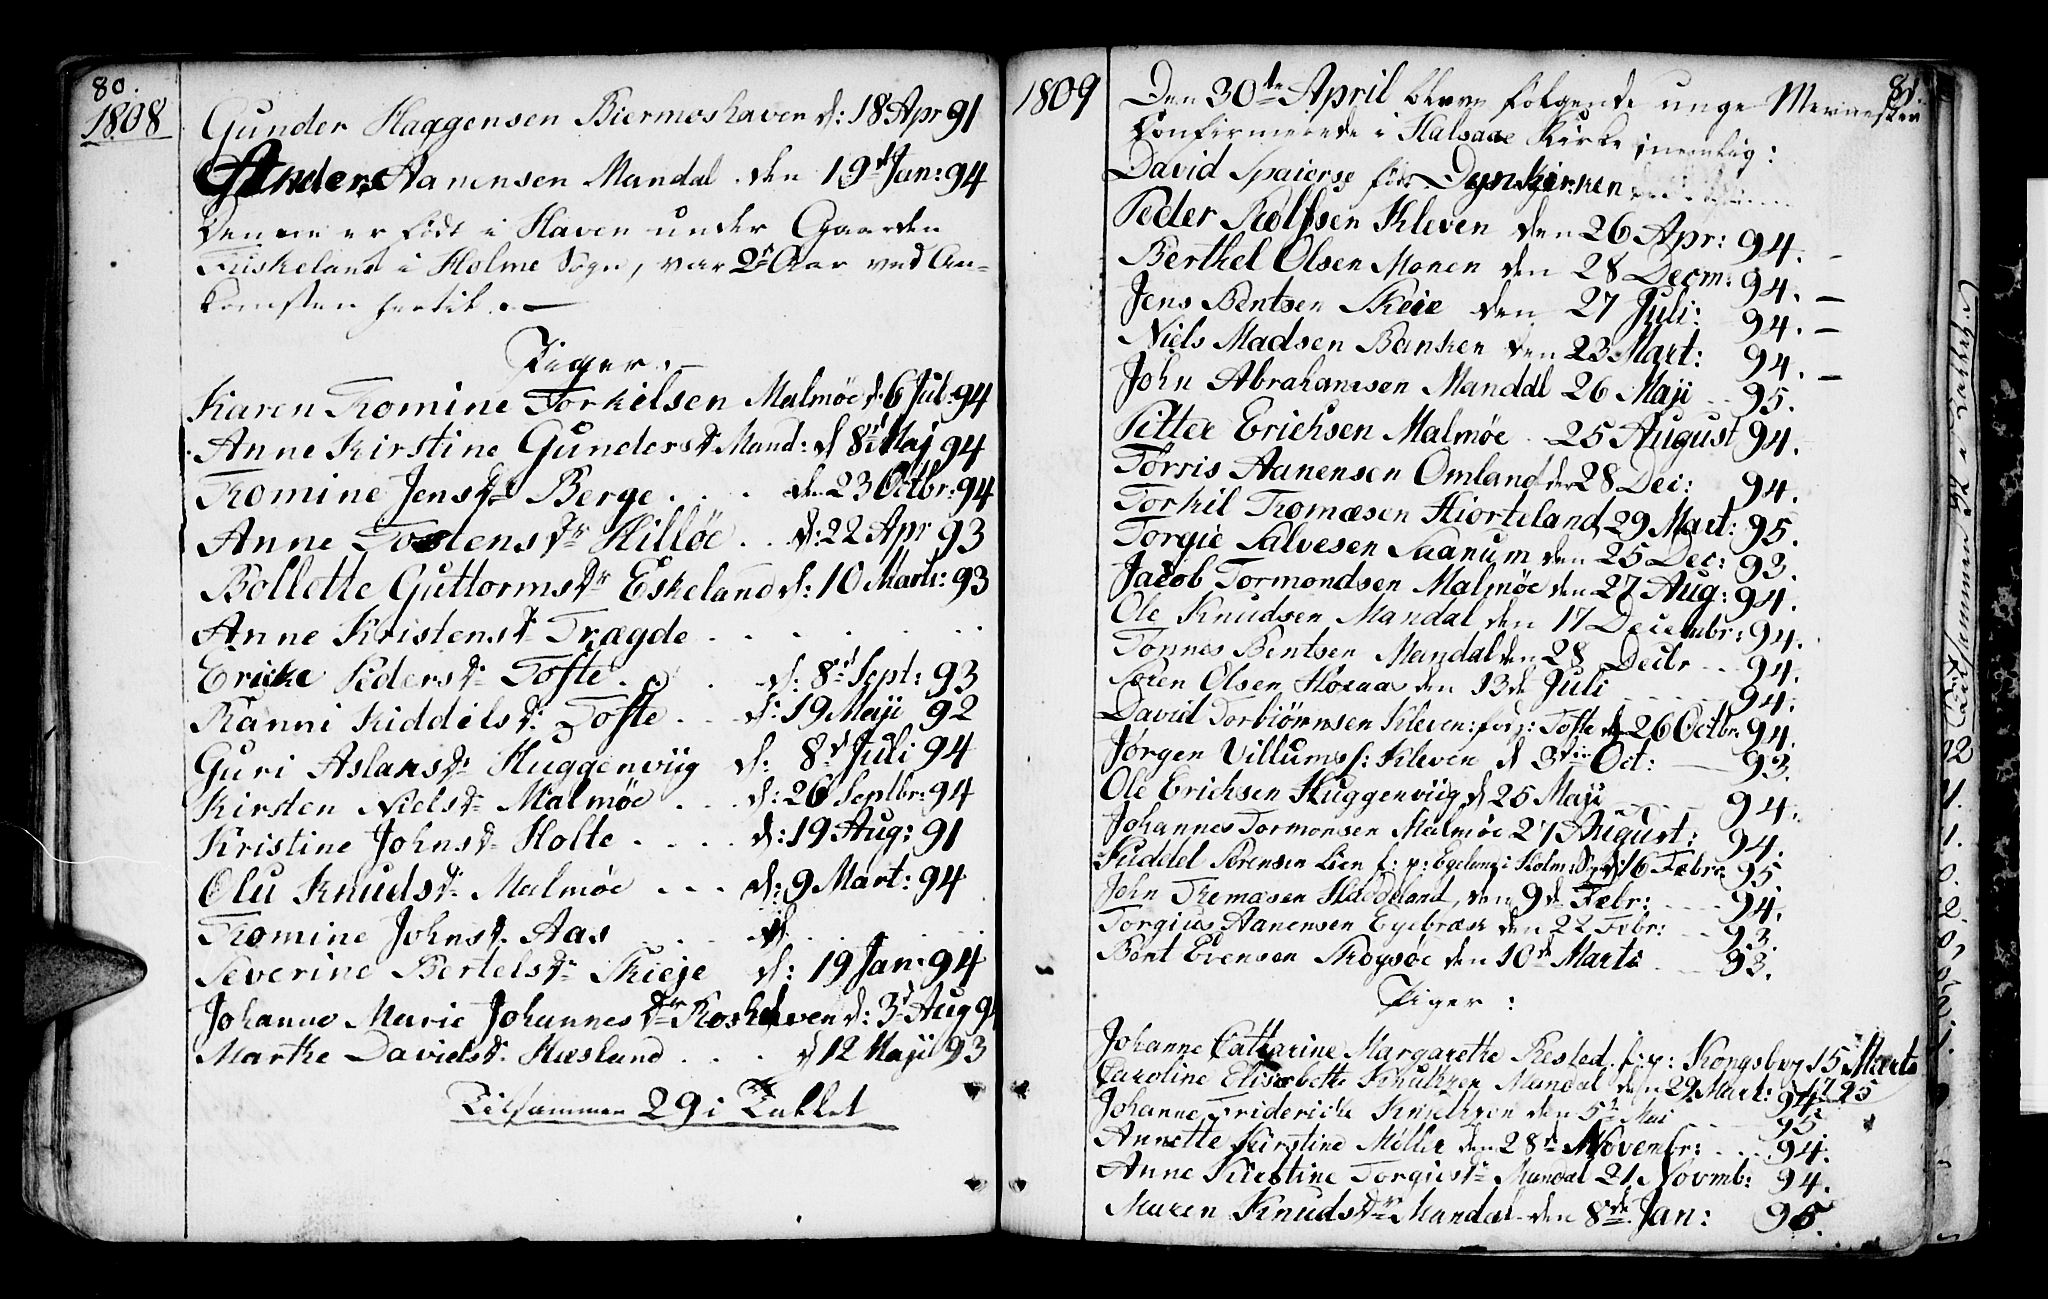 80.
1808
Gunder Haggensen Biermoshaven d: 18 Apr 91
Anders Aanensen Mandal den 19d Jan: 94
Denne er født i Haven under Gaarden
Fuskeland i Holme Sogn, var 2 Aar ved An-
komsten hertil. —
Piger. —
Karen Tomine Torkilsen Malmöe d. 6 Jul: 94
Anne Kirstine Gundersdr Mand: d 8d Maj 94
Tomine Jensdr Berge . . . den 23 Octbr: 94
Anne Tostensdr Hillöe . . d: 22 Apr 93
Bollette Guttormsdr Eskeland d: 10 Marti: 93
Anne Kristensdr Trægde . . . . . .
Ericke Pedersdr Tofte . . . d: 8d Sept: 93
Ranni Kiddelsdr Tofte . . . d: 19 Maji 92
Guri Aslaksdr Huggenviig d: 8d Juli 94
Kirsten Nielsdr Malmöe . . . d: 26 Septbr: 94
Kristine Johnsdr Holte . . . . d: 19 Aug: 91
Olu Knudsdr Malmöe . . . d: 9 Mart: 94
Tomine Johnsd. Aas . . . d . . . .
Severine Bertelsdr Skieje d: 19 Jan: 94
Johanne Marie Johannesdr Roskleven d: 3d Aug 9
Marthe Davidsdr. Hæsland . . . . d 12 Maji 93
Tilsammen 29 i Tallet
1809
81.
Den 30te April bleve følgende unge Mennesker
Confirmerede i Halsaae Kirke, nemlig:
David Spaierse fød Dynkirken
Peder Rolfsen Kleven den 26 Apr: 94. -
Berthel Olsen Monen den 28 Decm: 94. —
Jens Bentsen Skeie den 27 Juli: 94. —
Niels Madsen Banken den 23 Mart: 94. —
John Abrahamsen Mandal 26 Maji . . 95.
Petter Erichsen Malmöe . 25 August 94.
Torris Aanensen Omland den 28 Dec: 94.
Torkil Tomæsen Hiorteland 29 Mart: 95.
Torgie Salvesen Saanum den 25 Dec: 93.
Jacob Tormondsen Malmöe den 27 Aug: 94.
Ole Knudsen Mandal den 17 Decembr: 94.
Tonnes Bentsen Mandal den 28 Decbr . . 94.
Soren Olsen Höraas den 13de Juli . . . . 94.
David Torbiörnsen Kleven: fød p: Tofte d 26 Octbr 94.
Jørgen Villums: Kleven d 3die Oct: — 93.
Ole Erichsen Huggenviig d 25 Maji . . . . 94.
Johannes Tormonsen Malmöe 27 August: 94.
Kiddel Sørensen Lien f: p: Egeland i Holm: Sog d: 16 Febr: 95
John Tomasen Haddeland, den 9de Febr: . . . . 94.
Torgius Aanensen Egebræk den 22 Febr: . . 93.
Bent Evensen Skogsöe den 10de Marti . . . 93.
Piger :
Johanne Cattharine Margarethe Rested. f: p: Kongsberg 15 Marti
1795
Caroline Elisabethe Knuthzen Mandal den 29 Mart: 94.
Johanne Friderieke Knuthzon den 5t Mai . . . 95
Annette Kirstine Möller den 28d Novembr: . . . 94.
Anne Kirstine Torgiesdr Mandal 21 Novmb: 94.
Maren Knudsdr Mandal den 8de Jan: 95.